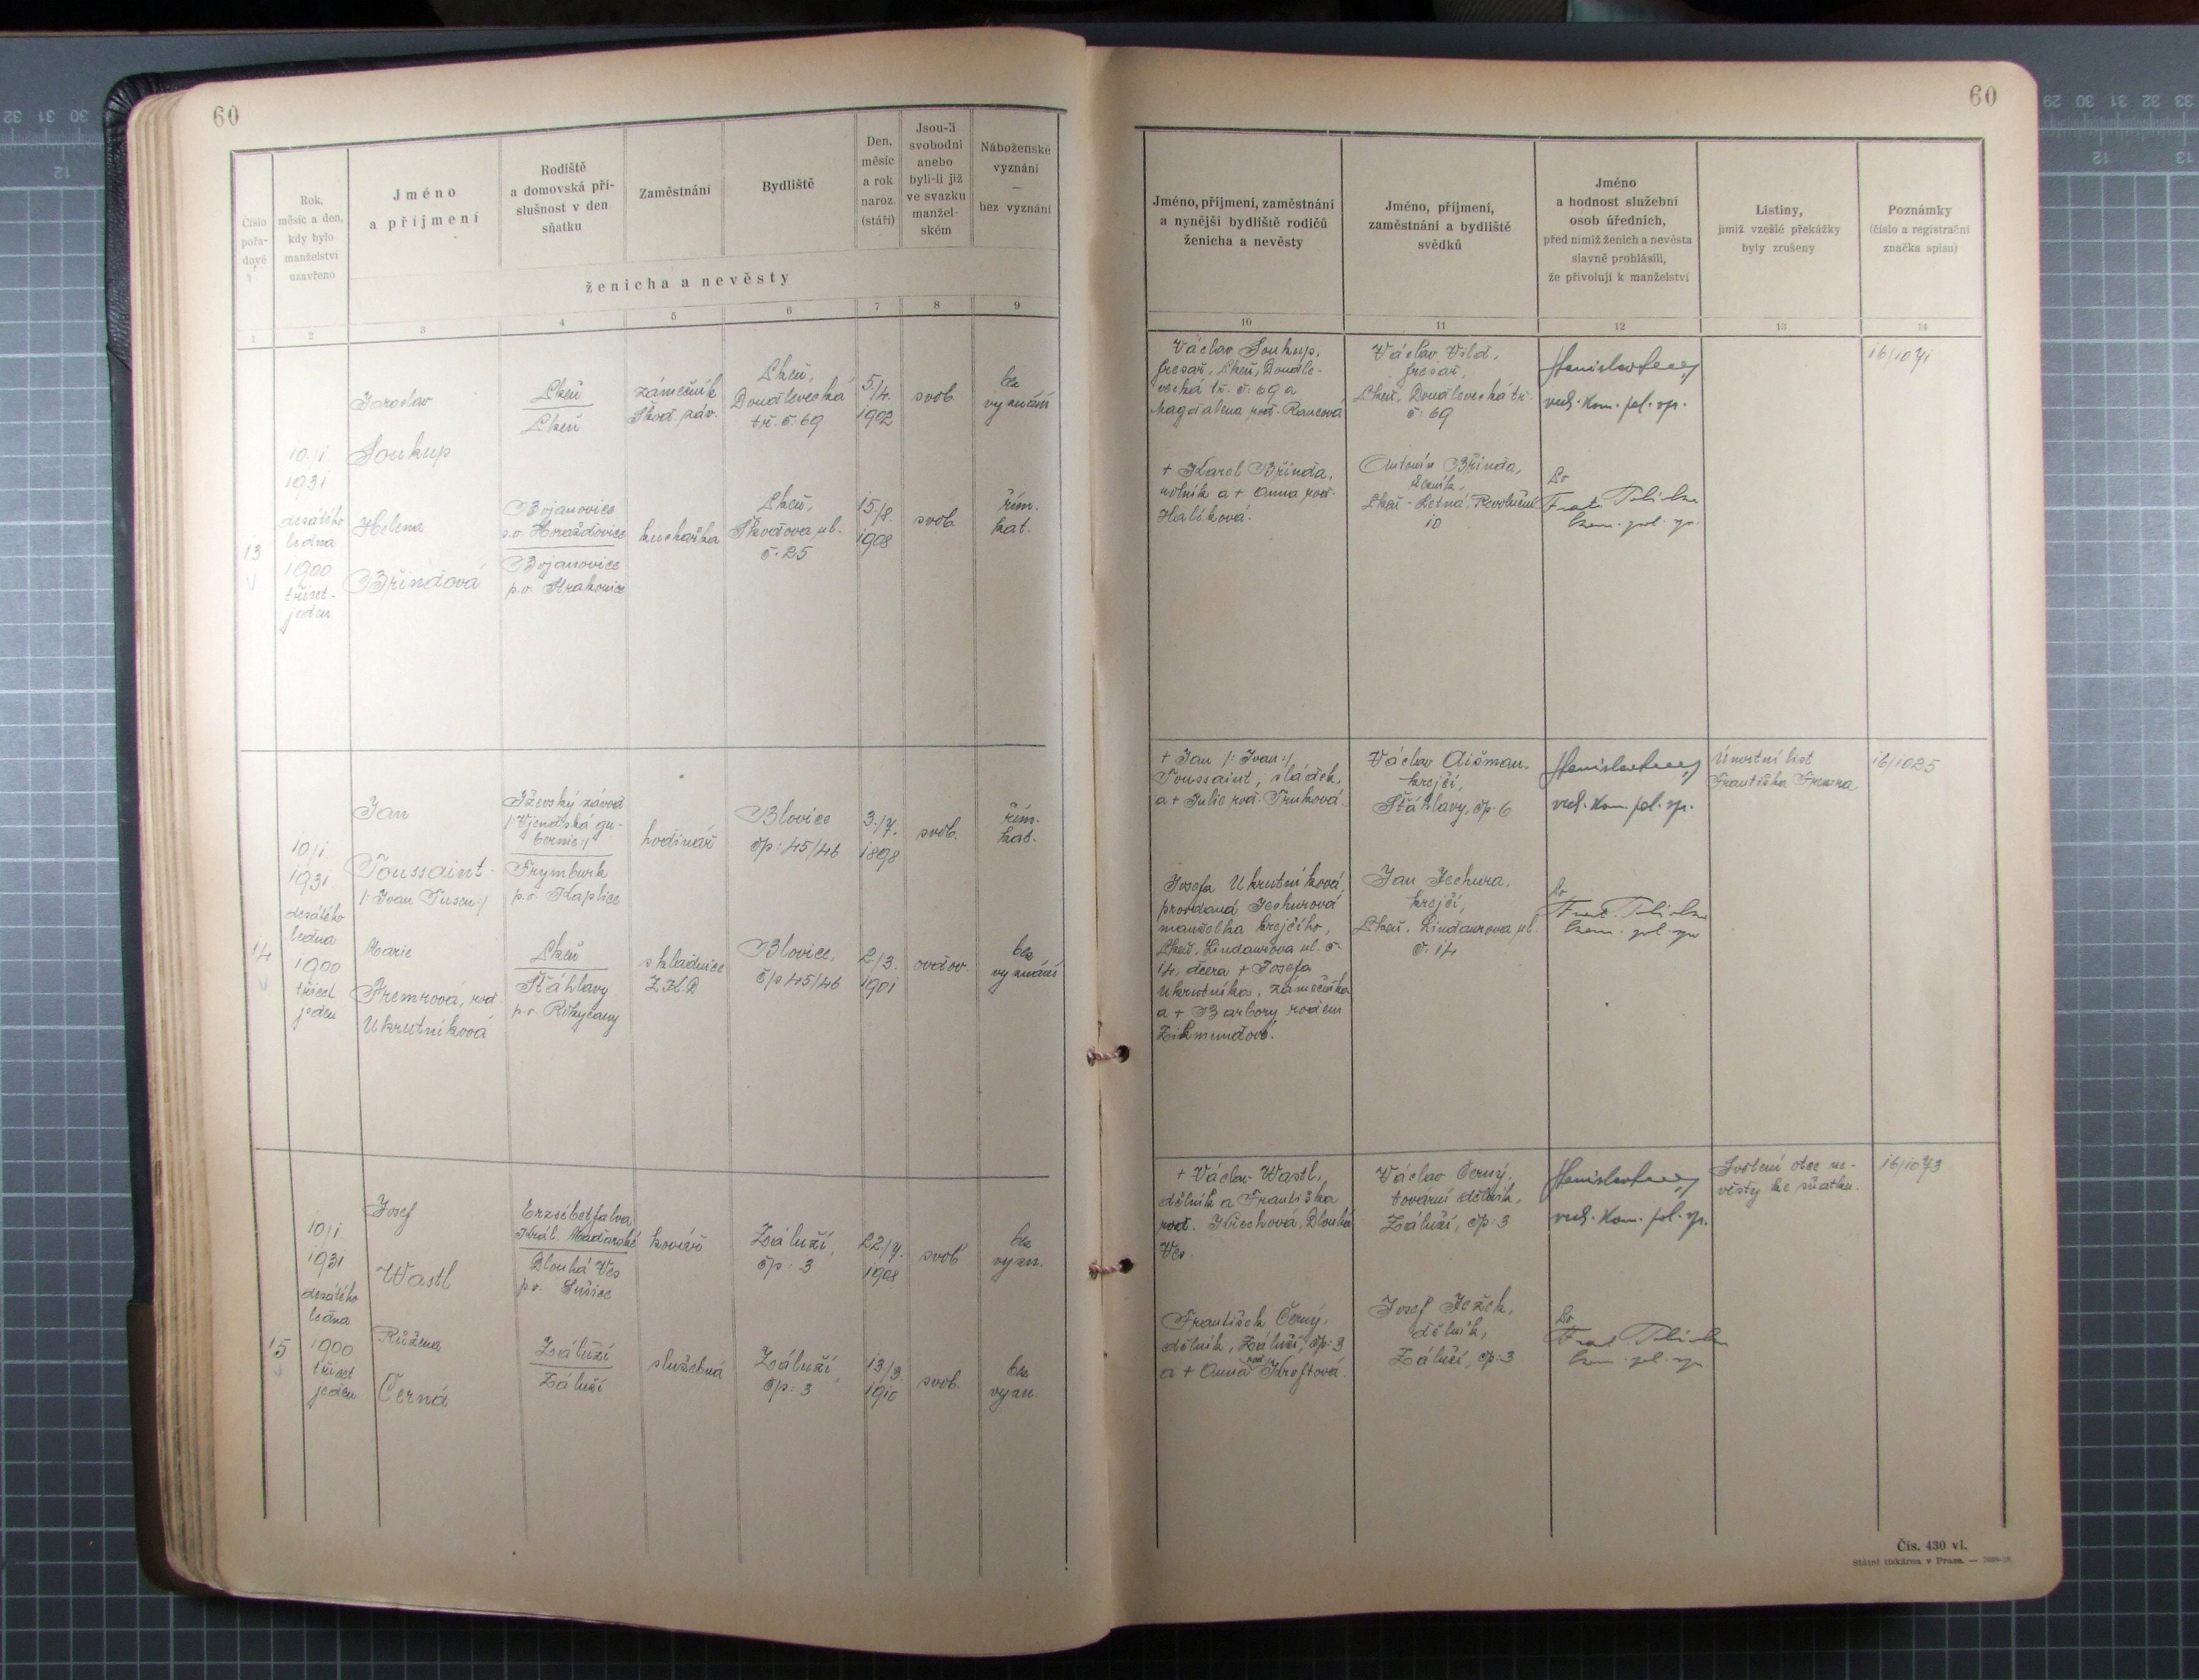 60
Číslo
pořa-
dové
Rok,
měsíc a den,
kdy bylo
manželství
uzavřeno
Jméno
a příjmení
Rodiště
a domovská pří-
slušnost v den
sňatku
Zaměstnání
Bydliště
Den,
měsíc
a rok
naroz.
(stáří)
Jsou-li
svobodni
anebo
byli-li již
ve svazku
manžel-
ském
Náboženské
vyznání
—
bez vyznání
ženicha a nevěsty
1 2 3 4 5 6 7 8 9
13
10./I.
1931
desátého
ledna
1900
třicet-
jeden
Jaroslav
Soukup
Plzeň
Plzeň
zámečník
Škod. záv.
Plzeň,
Doudlevecká
tř. č. 69
5./4.
1902
svob.
bez
vyznání
Helena
Břindová
Bojanovice
p.o. Horažďovice
Bojanovice
p.o. Strakonice
kuchařka
Plzeň,
Škodova ul.
č. 25
15./8.
1908
svob.
řím.
kat.
14
10./I.
1931
desátého
ledna
1900
třicet
jeden
Jan
Toussaint
/: Ivan Tusen :/
Iževský závod
/: Vjendská gu-
bernie :/
Frymburk
p.o. Kaplice
hodinář
Blovice
čp: 45/46
3./7.
1898
svob.
řím.
kat.
Marie
Fremrová, roz.
Ukrutníková
Plzeň
Šťáhlavy
p.o. Rokycany
skladnice
Blovice,
čp 45/46
2./3.
1901
ovdov.
bez
vyznání
15
10./I.
1931
desátého
ledna
1900
třicet
jeden
Josef
Wastl
Erzsébetfalva
Král. Maďarské
Dlouhá Ves
p.o. Sušice
kovář
Záluží,
čp: 3
22./7.
1908
svob.
bez
vyzn.
Růžena
Černá
Záluží
Záluží
služebná
Záluží,
čp: 3
13/9.
1910
svob.
bez
vyzn.
60
Jméno, příjmení, zaměstnání
a nynější bydliště rodičů
ženicha a nevěsty
Jméno, příjmení,
zaměstnání a bydliště
svědků
Jméno
a hodnost služební
osob úředních,
před nimiž ženich a nevěsta
slavně prohlásili,
že přivolují k manželství
Listiny,
jimiž vzešlé překážky
byly zrušeny
Poznámky
(číslo a registrační
značka spisu)
10 11 12 13 14
Václav Soukup,
fresař, Plzeň, Doudle-
vecká tř. č. 69 a
Magdalena roz. Rancová
Václav Vild,
fresař,
Plzeň, Doudlevecká tř.
č. 69
vrch. kom. pol. sp.
16/1071
+ Karel Břinda,
rolník a + Anna roz.
Halíková.
Antonín Břinda,
Plzeň - Letná, Revoluční
10
Dr
kom. pol. sp.
+ Jan /: Ivan :/
Toussaint, sládek,
a + Julie roz. Truková.
Václav Aišman,
krejčí,
Šťáhlavy, čp. 6
vrch. kom. pol. sp.
Úmrtní list
Františka Fremra
16/1025
Josefa Ukrutníková,
provdaná Jechurová
manželka krejčího,
Plzeň, Lindaurova ul. č.
14, dcera + Josefa
Ukrutníka, zámečníka
a + Barbory rozené
Zikmundové.
Jan Jechura,
krejčí,
Plzeň, Lindaurova ul.
č. 14
Dr
kom. pol. sp.
+ Václav Wastl,
dělník a Františka
roz. Křechová, Dlouhá
Ves.
Václav Černý,
tovární dělník,
Záluží, čp: 3
vrch. kom. pol. sp.
Svolení otce ne-
věsty ke sňatku.
16/1073
František Černý,
dělník, Záluží, čp: 3
a + Anna roz. Kroftová.
Josef Ježek,
dělník,
Záluží, čp: 3
Dr
kom. pol. sp.
Čís. 430 vl.
Státní tiskárna v Praze.